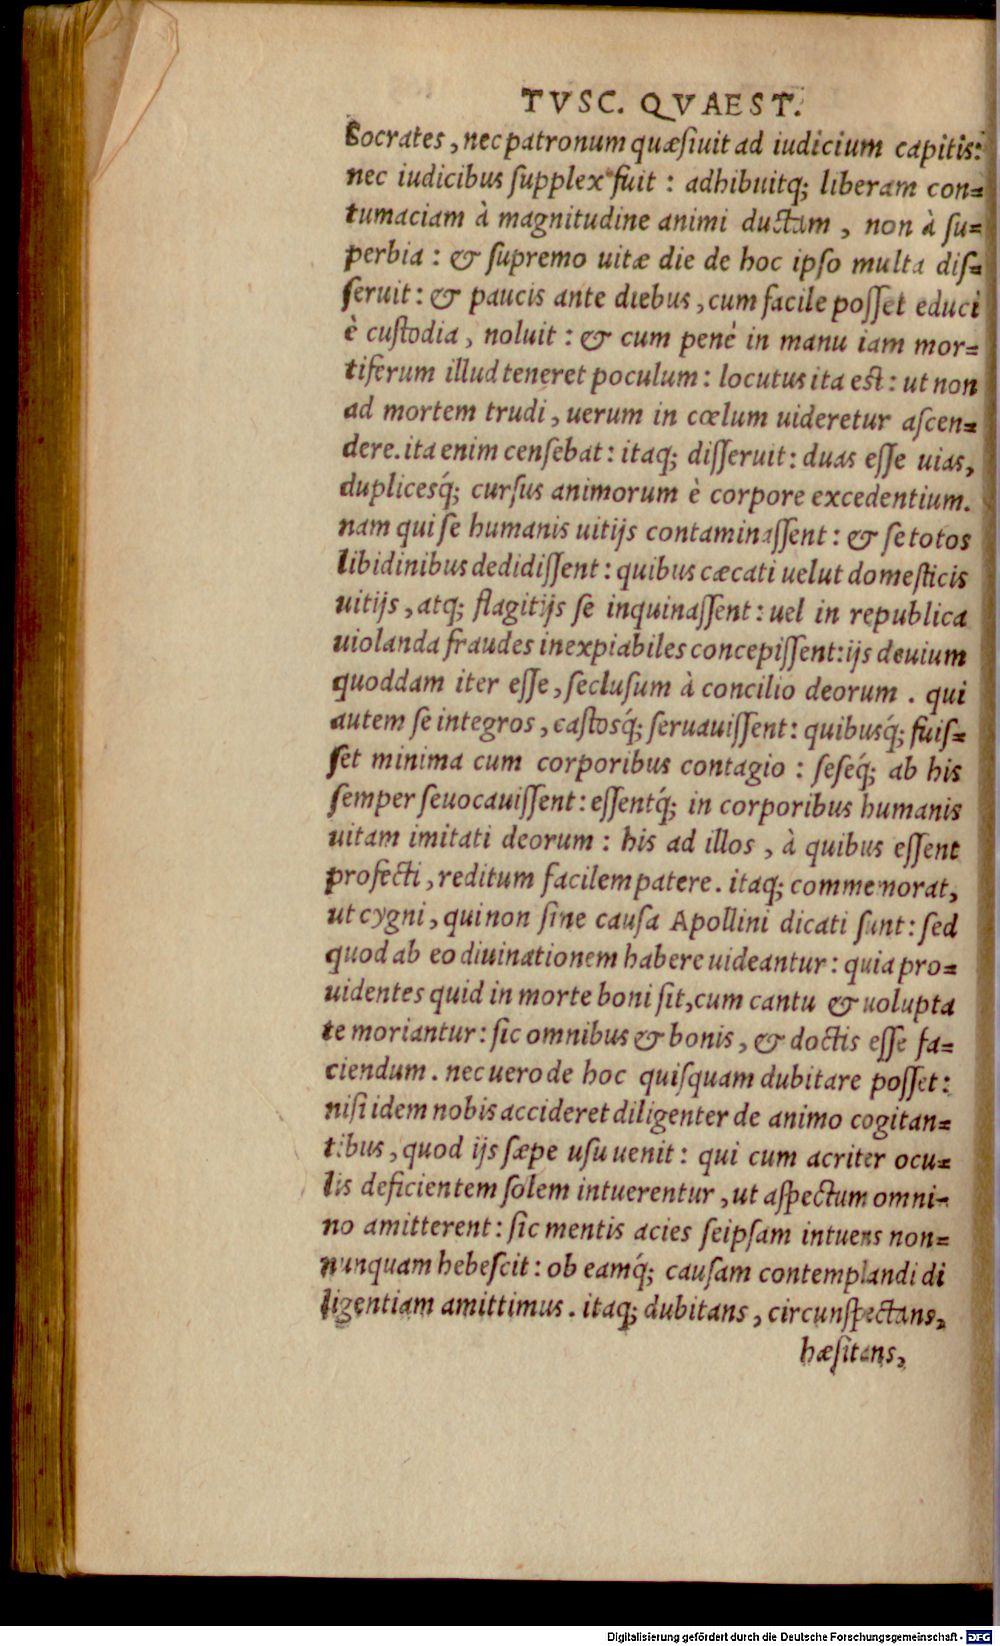 TVSC. QVAEST.
Socrates, nec patronum quæſiuit ad iudicium capitis:
nec iudicibus ſupplex fuit : adhibuitq; liberam con=
tumaciam à magnitudine animi ductam , non à ſu=
perbia : & ſupremo uitæ die de hoc ipſo multa diſ=
ſeruit : & paucis ante diebus , cum facile poſſet educi
è cuſtodia , noluit : & cum penè in manu iam mor=
tiferum illud teneret poculum : locutus ita est : ut non
ad mortem trudi , uerum in cœlum uideretur aſcen=
dere. ita enim cenſebat : itaq; diſſeruit : duas eſſe uias,
duplicesq́; curſus animorum è corpore excedentium.
nam qui ſe humanis uitijs contaminaſſent : & ſe totos
libidinibus dedidiſſent : quibus cæcati uelut domeſticis
uitijs , atq; flagitijs ſe inquinaſſent : uel in republica
uiolanda fraudes inexpiabiles concepiſſent : ijs deuium
quoddam iter eſſe , ſecluſum à concilio deorum . qui
autem ſe integros , caſtosq́; ſeruauiſſent : quibusq́; fuiſ=
ſet minima cum corporibus contagio : ſeſeq́; ab his
ſemper ſeuocauiſſent : eſſentq́; in corporibus humanis
uitam imitati deorum : his ad illos , à quibus eſſent
profecti , reditum facilem patere . itaq; commemorat,
ut cygni , qui non ſine cauſa Apollini dicati ſunt : ſed
quod ab eo diuinationem habere uideantur : quia pro=
uidentes quid in morte boni ſit, cum cantu & uolupta
te moriantur : ſic omnibus & bonis , & doctis eſſe fa=
ciendum . nec uero de hoc quiſquam dubitare poſſet :
niſi idem nobis accideret diligenter de animo cogitan=
tibus , quod ijs ſæpe uſu uenit : qui cum acriter ocu=
lis deficientem ſolem intuerentur , ut aſpectum omni=
no amitterent : ſic mentis acies ſeipſam intuens non=
nunquam hebeſcit : ob eamq́; cauſam contemplandi di
ligentiam amittimus . itaq; dubitans , circunſpectans,
hæſitans,
Digitalisierung gefördert durch die Deutsche Forschungsgemeinschaft - DFG